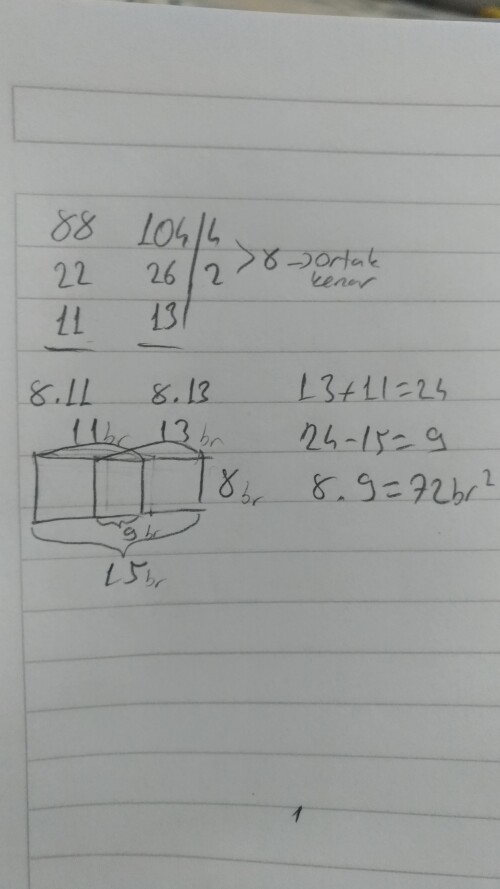 88 104 4
22 26 2 > 8 → ortak
kenar
11 13
8.11 8.13 13+11=24
11br 13br 24-15=9
8br 8.9=72br²
9br
15br
1